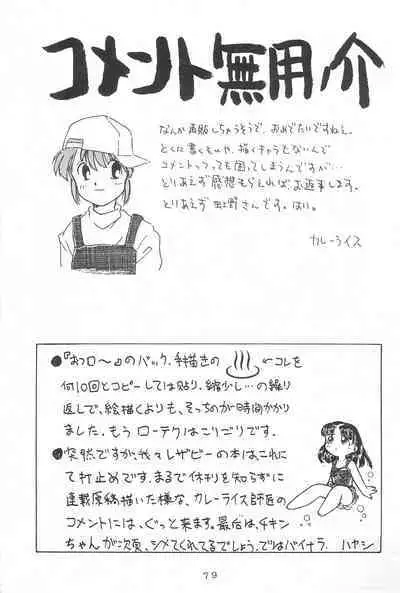 コメント無用ノ介
なんか再販しちゃうそうで、おめでたいですねえ。
とくに書くもいや、描くキャラとないんで
コメントっつっても困ってしまうんですが…
とりあえず感想もらえれば、お返事します。
とりあえず虹野さんです。はい。
カレーライス
●『おフロ〜』のバック、手描きの♨←コレを
何10回とコピーしては貼り、縮少し…の繰り
返しで、絵描くよりも、そっちのが時間かかり
ました。もうローテクはこりごりです。
●突然ですが、我々レザビーの本は、これに
て打止めです。まるで休刊を知らずに
連載原稿描いた様な、カレーライス師匠の
コメントには、ぐっと来ます。最后は、チキン
ちゃんが次頁、シメてくれてるでしょう。ではバイナラ ハヤシ
79